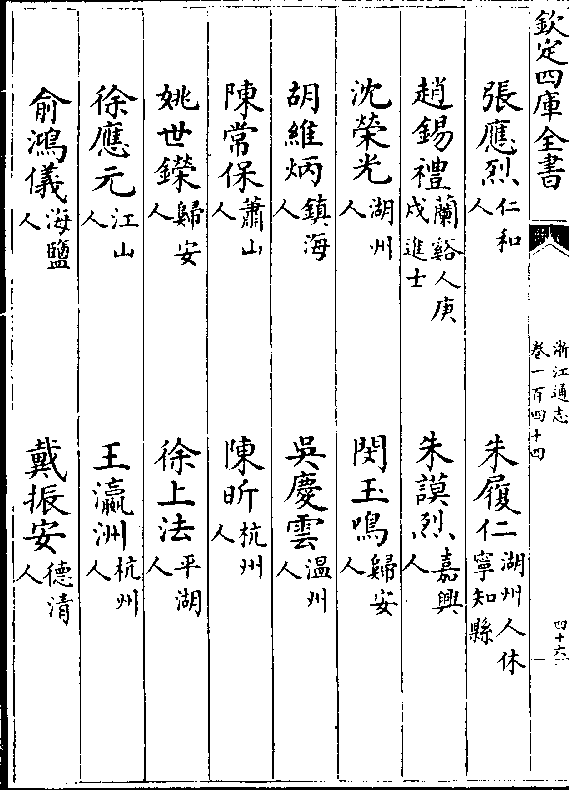 欽定四庫全書
浙江通志
卷一百四十四
四十六
張應烈仁和人
朱履仁湖州人休寧知縣
趙錫禮蘭谿人庚戌進士
朱謨烈嘉興人
沈榮光湖州人
閔玉鳴歸安人
胡維炳鎮海人
吳慶雲温州人
陳常保蕭山人
陳昕杭州人
姚世鑅歸安人
徐上法平湖人
徐應元江山人
王瀛洲杭州人
俞鴻儀海鹽人
戴振安德清人